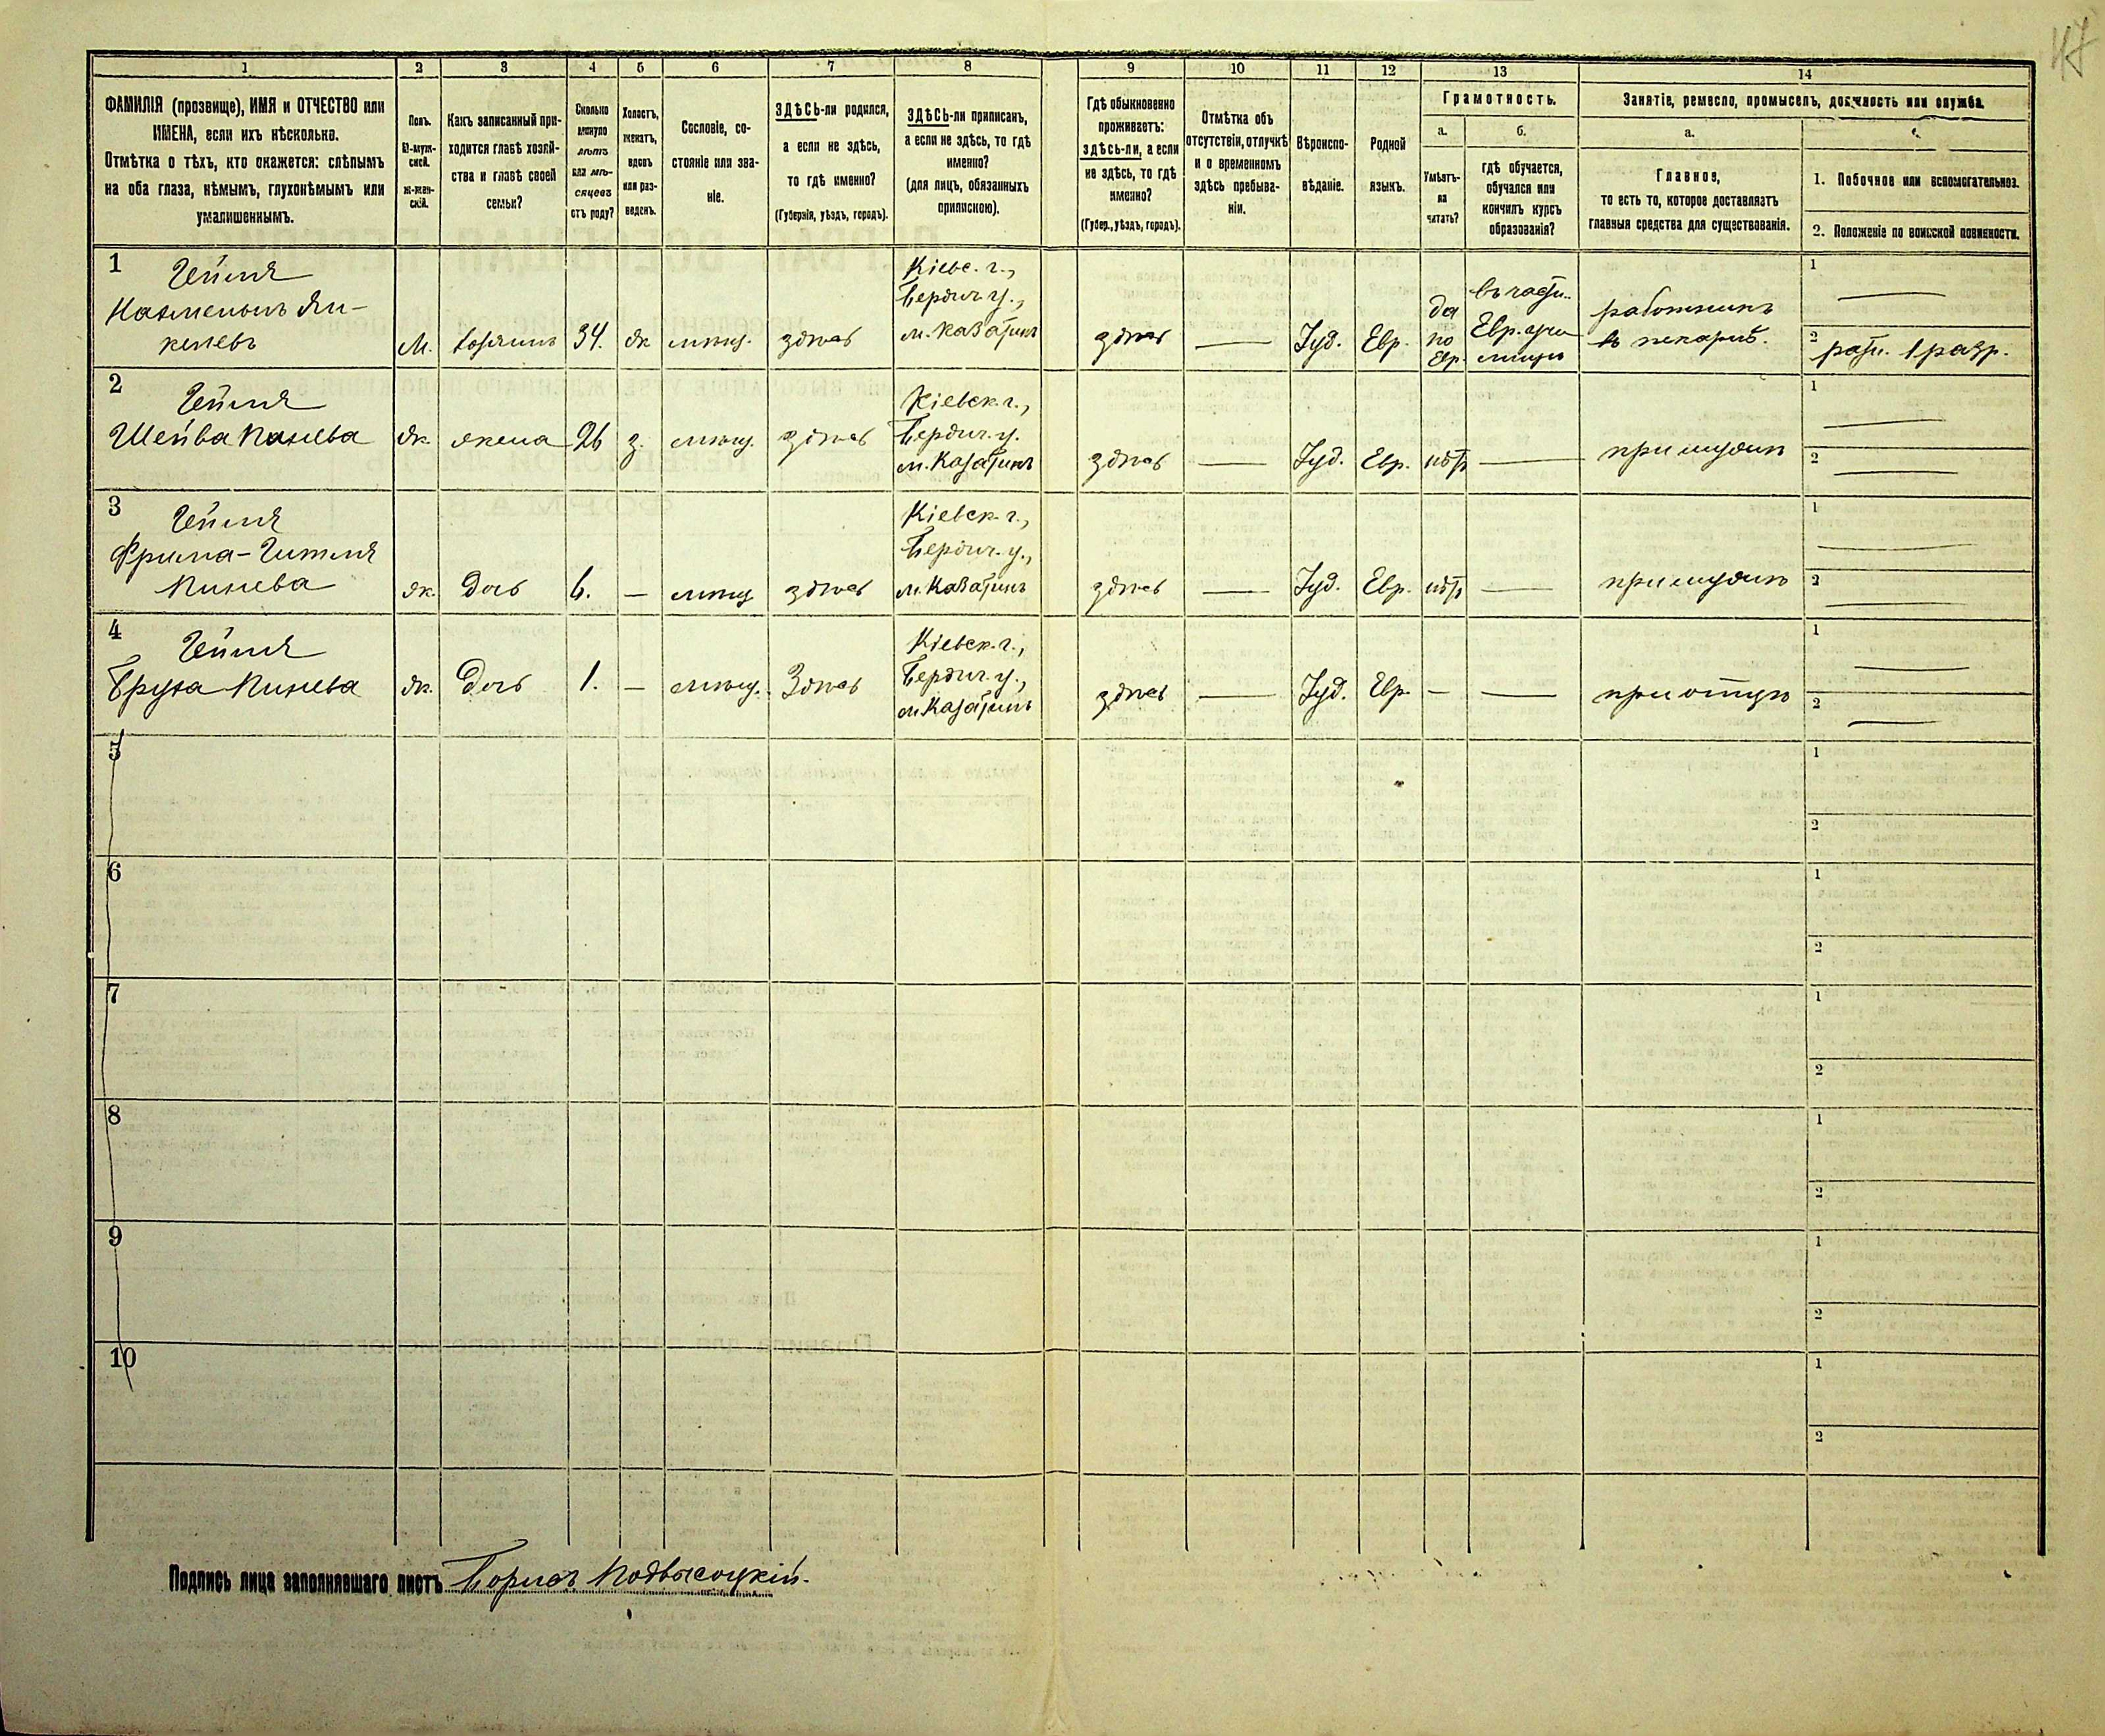 47
1
2
3
4
5
6
7
8
9
10
11
12
13
14
ФАМИЛІЯ (прозвище), ИМЯ и ОТЧЕСТВО или
ИМЕНА, если ихъ нѣсколько.
Отмѣтка о тѣхъ, кто окажется: слѣпымъ
на оба глаза, нѣмымъ, глухонѣмымъ или
умалишеннымъ.
Полъ.
М-муж-
ской.
ж-жен-
скій.
Какъ записанный при-
ходится главѣ хозяй-
ства и главѣ своей
семьи?
Сколько
минуло
лѣтъ
или мѣ-
сяцевъ
отъ роду?
Холостъ,
женатъ,
вдовъ
или раз-
веденъ.
Сословіе, со-
стояніе или зва-
ніе.
ЗДѢСЬ-ли родился,
а если не здѣсь,
то гдѣ именно?
(Губернія, уѣздъ, городъ).
ЗДѢСЬ-ли приписанъ,
а если не здѣсь, то гдѣ
именно?
(для лицъ, обязанныхъ
припискою).
Гдѣ обыкновенно
проживаетъ:
здѣсь-ли, а если
не здѣсь, то гдѣ
именно?
(Губер., уѣздъ, городъ).
Отмѣтка объ
отсутствіи, отлучкѣ
и о временномъ
здѣсь пребыва-
ніи.
Вѣроиспо-
вѣданіе.
Родной
языкъ.
Грамотность.
а.
Умѣетъ-
ли
читать?
б.
гдѣ обучается,
обучался или
кончилъ курсъ
образованія?
Занятіе, ремесло, промыселъ, должность или служба.
а.
Главное,
то есть то, которое доставляетъ
главныя средства для существованія.
1. Побочное или вспомогательное.
2. Положеніе по воинской повинности.
1
Гейля
келевъ
М.
хозяинъ
34.
ж
мѣщ.
здѣсь
Кіевс. г.,
Бердич. у.,
м. Казатинъ
здѣсь
—
Іуд.
Евр.
да
по
Евр.
Евр. учи
лищѣ
работникъ
въ пекарнѣ.
1
—
2
ратн. 1 разр.
2
Гейля
Шейва
ж.
жена
26
з.
мѣщ.
здѣсь
Кіевск. г.,
Бердич. у.
м. Казатинъ
здѣсь
—
Іуд.
Евр.
нѣтъ
—
при мужѣ
1
—
2
—
3
Гейля
Фрима-Гитля
Пинева
ж.
дочь
6.
—
мѣщ
здѣсь
Кіевск. г.,
Бердич. у.,
м. Казатинъ
здѣсь
—
Іуд.
Евр.
нѣтъ
—
1
—
2
—
4
Гейля
ж.
Дочь
1.
—
мѣщ.
Здѣсь
Кіевск. г.,
Бердич. у.,
м. Казатинъ
здѣсь
—
Іуд.
Евр.
—
—
при отцѣ
1
—
2
—
5
1
2
6
1
2
7
1
2
8
1
2
9
1
2
10
1
2
Подпись лица заполнявшаго листъ Борисъ Подвысоцкій.